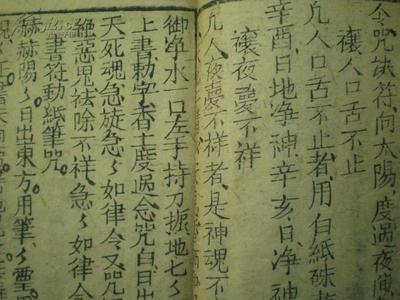 令咒訣符向太陽度過夜
禳人口舌不止
凡人口舌不止者用白紙硃
辛酉日地净神辛亥日净神
禳夜夢不祥
凡人夜夢不祥者是神魂不
净水一口左手持刀掘地七〻
上書勅字香上度過念咒白日出
天死魂急旋急〻如律令又咒
絕惡思祛除不祥急〻如律令
書符動紙筆咒
赫赫陽〻日出東方用筆〻灵